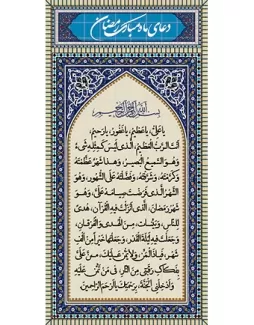 دعای ماه مبارک رمضان
بسم الله الرحمن الرحیم
یا عَلِیُّ، یا عَظیمُ، یا غَفُورُ، یا رَحیمُ،
اَنْتَ الرَّبُّ الْعَظیمُ، الَّذی لَیْسَ کَمِثْلِهِ شَیْءٌ
وَهُوَ السَّمیعُ الْبَصیرُ، وَهذا شَهْرٌ عَظَّمْتَهُ
وَکَرَّمْتَهُ، وَشَرَّفْتَهُ، وَفَضَّلْتَهُ عَلَی الشُّهُورِ، وَهُوَ
الشَّهْرُ الَّذی فَرَضْتَ صِیامَهُ عَلَیَّ، وَهُوَ
شَهْرُ رَمَضانَ، الَّذی اَنْزَلْتَ فیهِ الْقُرْآنَ، هُدیً
لِلنّاسِ، وَبَیِّناتٍ، مِنَ الْهُدی وَالْفُرْقانِ،
وَجَعَلْتَ فیهِ لَیْلَةَ الْقَدْرِ، وَجَعَلْتَها خَیْراً مِنْ اَلْفِ
شَهْرٍ، فَیا ذَا الْمَنِّ، وَلا یُمَنُّ عَلَیْکَ، مُنَّ عَلَیَّ
بِفَکاکِ رَقَبَتی مِنَ النّارِ، فی مَنْ تَمُنُّ عَلَیْهِ
وَاَدْخِلْنِی الْجَنَّةَ، بِرَحْمَتِکَ یا اَرْحَمَ الرّاحِمینَ